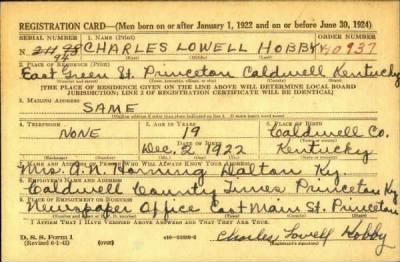 REGISTRATION CARD—(Men born on or after January 1, 1922 and on or before June 30, 1924)
SERIAL NUMBER 1. NAME (Print) ORDER NUMBER
N. 98 CHARLES LOWELL HOBBY 10937
94
(First) (Middle) (Last)
2. PLACE OF RESIDENCE (Print)
East Green St. Princeton Caldwell Kentucky
[THE PLACE OF RESIDENCE GIVEN ON THE LINE ABOVE WILL DETERMINE LOCAL BOARD
JURISDICTION; LINE 2 OF REGISTRATION CERTIFICATE WILL BE IDENTICAL]
3. MAILING ADDRESS
SAME
4. TELEPHONE 5. AGE IN YEARS 6. PLACE OF BIRTH
NONE 19 Caldwell Co.
DATE OF BIRTH
Dec. 2, 1922 Kentucky
7. NAME AND ADDRESS OF PERSON WHO WILL ALWAYS KNOW YOUR ADDRESS
Mrs. A.N. Horning Dalton Ky.
8. EMPLOYER'S NAME AND ADDRESS
Caldwell County Times Princeton Ky
9. PLACE OF EMPLOYMENT OR BUSINESS
Newspaper Office East Main St. Princeton
I AFFIRM THAT I HAVE VERIFIED ABOVE ANSWERS AND THAT THEY ARE TRUE.
D. S. S. Form 1
(Revised 6-1-42) (over) Charles Lowell Hobby
(Registrant's signature)